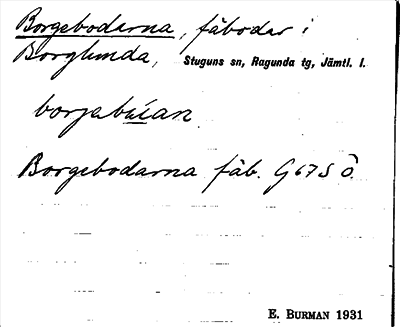 Borgebodarna, fäbodar i
Borglunda, Stuguns sn, Ragunda tg, Jämtl. l.
Borgebodarna fäb. G67S Ö.
E. BURMAN 1931